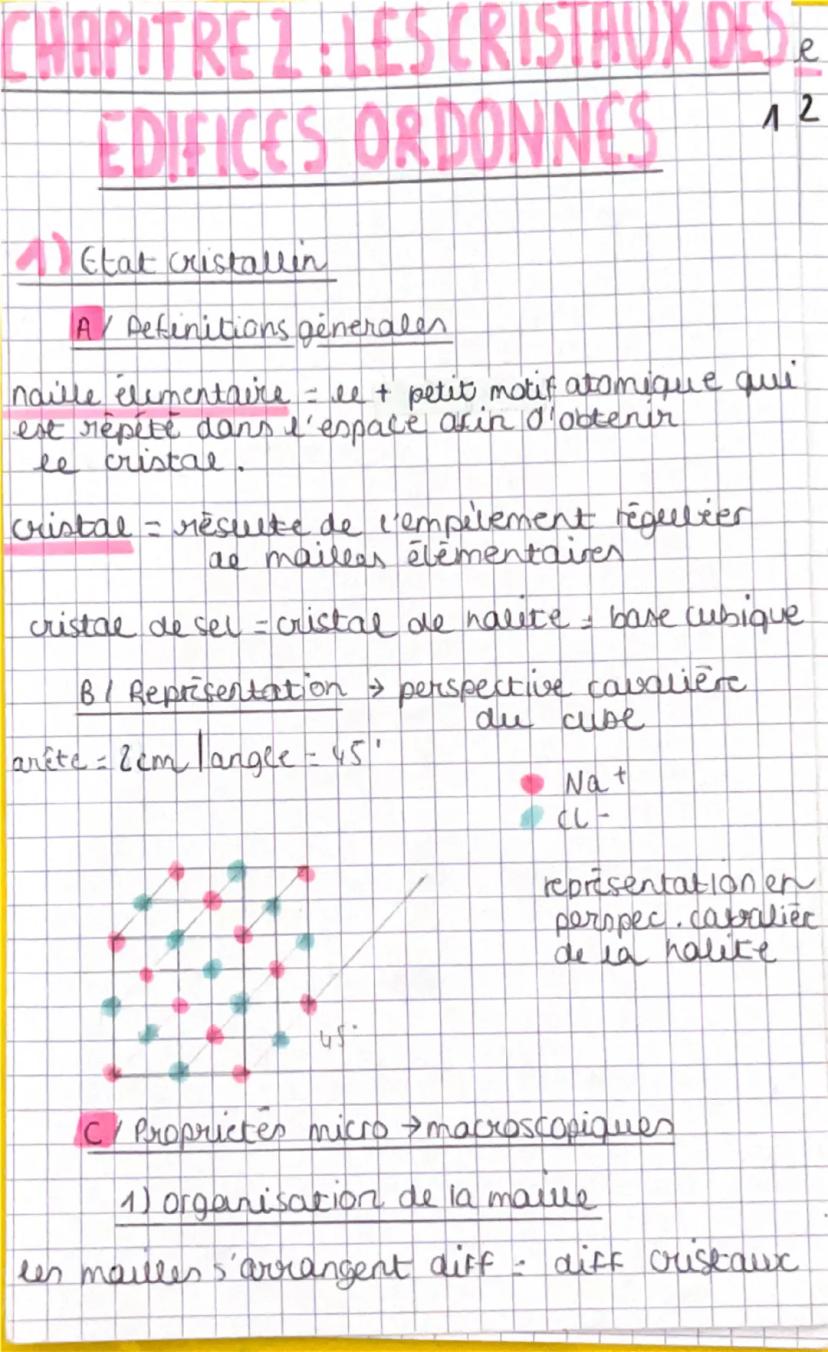 CHAPITRE 2 : LES CRISTAUX DES
EDIFICES ORDONNES
e
1 2
1) Etat cristallin
A / Definitions génerales
maille élementaire = le + petit motif atomique qui
est répété dans l'espace afin d'obtenir
le cristal.
cristal = résulte de l'empilement régulier
de mailles élémentaires
cristal de sel = cristal de halite = base cubique
B / Représentation → perspective cavalière
du cube
arête = 2cm / angle = 45°
Na+
Cl-
représentation en
perspec. cavalièr
de la halite
45°
C / Proprietés micro → macroscopiques
1) organisation de la maille
les mailles s'arrangent diff = diff cristaux